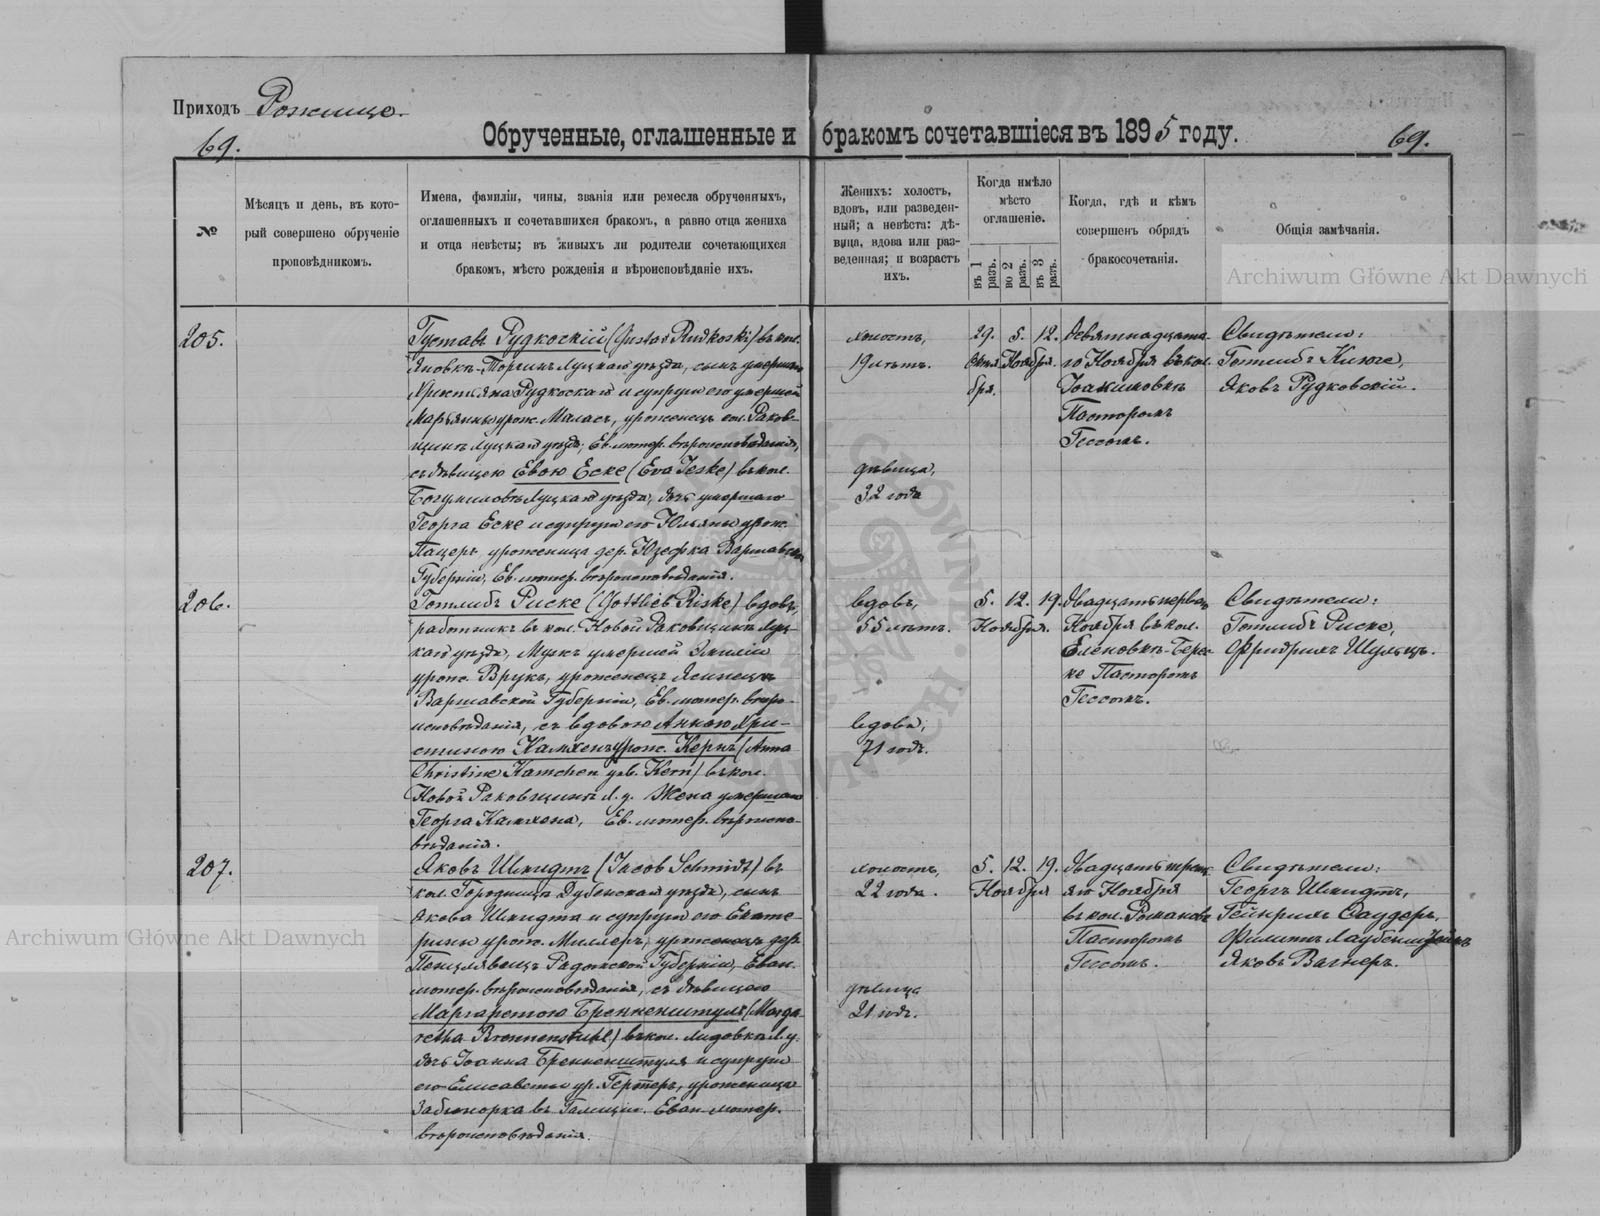 Приходъ Рожище.
69.
Обрученные, оглашенные и бракомъ сочетавшіеся въ 1895 году.
69.
№
Мѣсяцъ и день, въ кото-
рый совершено обрученіе
проповѣдникомъ.
Имена, фамиліи, чины, званія или ремесла обрученныхъ,
оглашенныхъ и сочетавшихся бракомъ, а равно отца жениха
и отца невѣсты; въ живыхъ ли родители сочетающихся
бракомъ, мѣсто рожденія и вѣроисповѣданіе ихъ.
Женихъ: холостъ,
вдовъ, или разведен-
ный; а невѣста: дѣ-
вица, вдова или раз-
веденная; и возрастъ
ихъ.
Когда имѣло
мѣсто
оглашеніе.
въ 1 разъ.
во 2 разъ.
въ 3 разъ.
Когда, гдѣ и кѣмъ
совершенъ обрядъ
бракосочетанія.
Общія замѣчанія.
205.
Густавъ Рудкоскій (Gustav Rudkoski) въ кол.
Яновкѣ-Торчинъ Луцкаго уѣзда, сынъ умершаго
Христіяна Рудкоскаго и супруги его умершей
Марьянны урож. Маласъ, уроженецъ кол. Раков-
щина Луцкаго уѣзда, Ев. лютер. вѣроисповѣданія,
съ дѣвицею Евою Еске (Eva Jeske) въ кол.
Богумиловкѣ Луцкаго уѣзда, дочь умершаго
Георга Еске и супруги его Юльяны урож.
Пацеръ, уроженица дер. Юзефка Варшавской
Губерніи, Ев. лютер. вѣроисповѣданія.
холостъ,
19 лѣтъ.
дѣвица,
32 года
29. 5. 12.
Октя Ноября.
бря.
Девятнадцата-
го Ноября въ кол.
Іоахимовкѣ
Пасторомъ
Гессомъ.
Свидѣтели:
Готлибъ Клюге,
Яковъ Рудковскій.
206.
Готлибъ Риске (Gottlieb Riske) вдовъ,
работникъ въ кол. Новой Раковщинѣ Луц-
каго уѣзда, Мужъ умершей Эмиліи
урож. Врукъ, уроженецъ
Варшавской Губерніи, Ев. лютер. вѣро-
исповѣданія, съ вдовою Анною Хри-
стиною Камхенъ урож. Кернъ (Anna
Christine Kamchen geb. Kern) въ кол.
Новой Раковщинѣ Л. у. Жена умершаго
Георга Камхена, Ев. лютер. вѣроиспо-
вѣданія.
вдовъ,
55 лѣтъ.
вдова,
71 годъ.
5. 12. 19.
Ноября.
Двадцать перваго
Ноября въ кол.
Еленовкѣ-Бере-
ке Пасторомъ
Гессомъ.
Свидѣтели:
Готлибъ Риске,
Фридрихъ Шульцъ.
207.
Яковъ Шмидтъ (Jacob Schmidt) въ
кол. Городница Дубенскаго уѣзда, сынъ
Якова Шмидта и супруги его Екате-
рины урож. Миллеръ, уроженецъ дер.
Радомской Губерніи, Еван.
лютер. вѣроисповѣданія, съ дѣвицею
Маргаретою Бренненштуль (Marga-
retha Brennenstuhl) въ кол. Лидовкѣ Л. у.
дочь Іоанна Бренненштуля и супруги
его Елисаветы ур. Гертеръ, уроженица
въ Галиціи. Еван. лютер.
вѣроисповѣданія.
холостъ,
22 года.
дѣвица
21 годъ.
5. 12. 19.
Ноября
Двадцать треть-
яго Ноября
въ кол. Романовъ
Пасторомъ
Гессомъ.
Свидѣтели:
Георгъ Шмидтъ,
Гейнрихъ Саудеръ,
Филиппъ Лаубенштейнъ
Яковъ Вагнеръ.
Archiwum Główne Akt Dawnych
Archiwum Główne Akt Dawnych